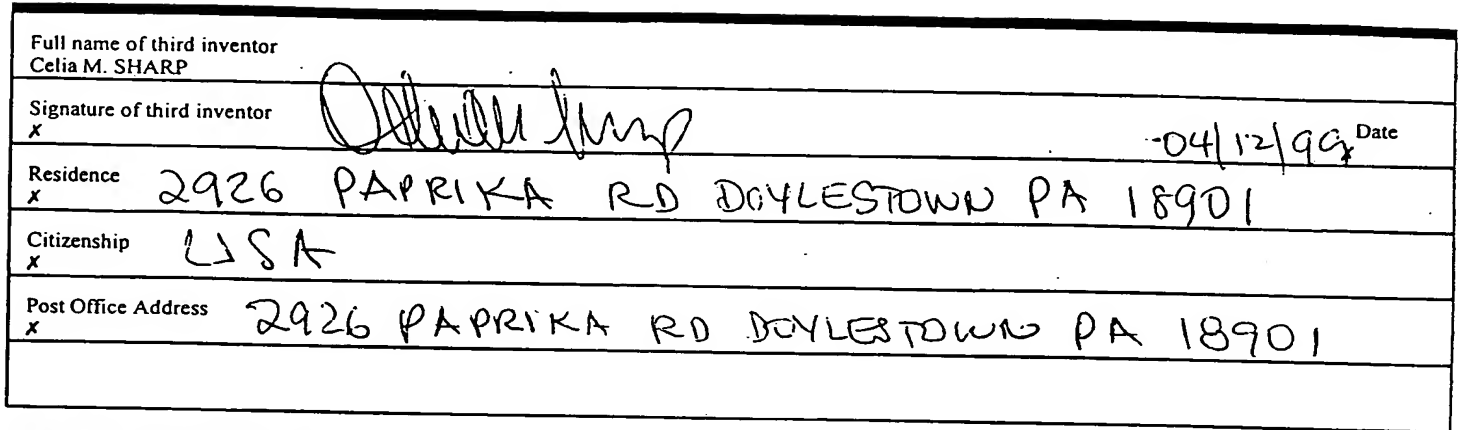 Full name of third inventor
Celia M. SHARP
Signature of third inventor
x
04/12/99 Date
x
Residence 2926 PAPRIKA RD DOYLESTOWN PA 18901
x
Citizenship USA
x
Post Office Address 2926 PAPRIKA RD DOYLESTOWN PA 18901
x